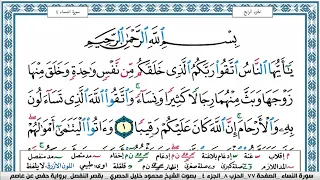 الجزء الرابع
سورة النساء ٤
بِسْمِ ٱللَّهِ ٱلرَّحْمَٰنِ ٱلرَّحِيمِ
يَٰٓأَيُّهَا ٱلنَّاسُ ٱتَّقُوا۟ رَبَّكُمُ ٱلَّذِى خَلَقَكُم مِّن نَّفْسٍ وَٰحِدَةٍ وَخَلَقَ مِنْهَا
زَوْجَهَا وَبَثَّ مِنْهُمَا رِجَالًا كَثِيرًا وَنِسَآءً ۚ وَٱتَّقُوا۟ ٱللَّهَ ٱلَّذِى تَسَآءَلُونَ
بِهِۦ وَٱلْأَرْحَامَ ۚ إِنَّ ٱللَّهَ كَانَ عَلَيْكُمْ رَقِيبًا ١ وَءَاتُوا۟ ٱلْيَتَٰمَىٰٓ أَمْوَٰلَهُمْ
سورة النساء - الصفحة ٧٧ الحزب ٨ الجزء ٤ - بصوت الشيخ محمود خليل الحصري - بقصر المنفصل برواية حفص عن عاصم